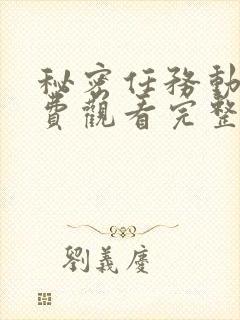 秘密任務動
費觀看完整
劉義慶